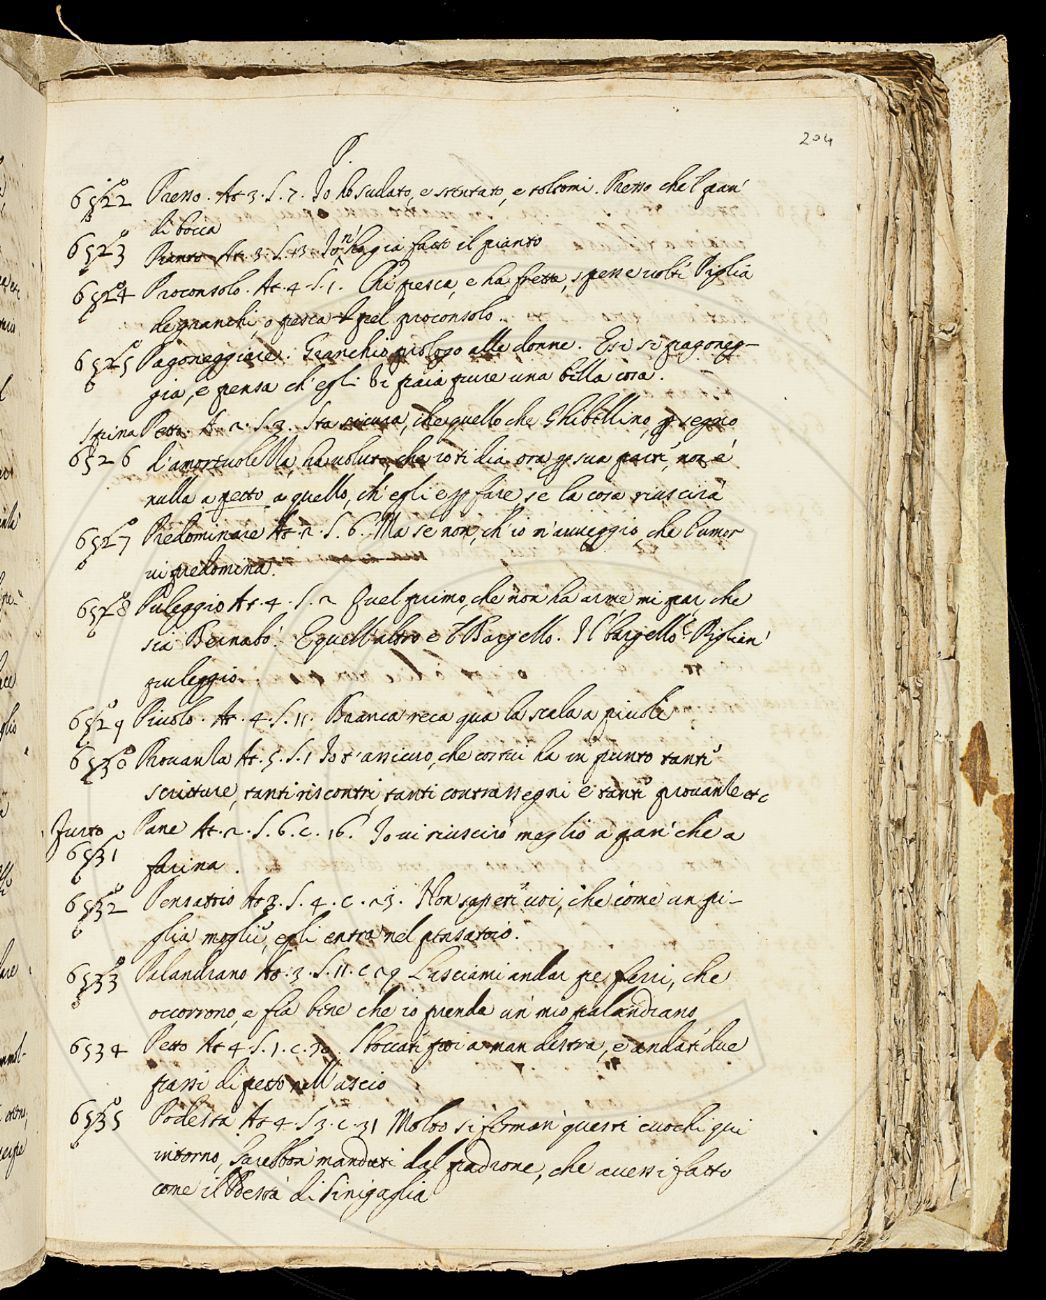 204
P.
6522 Presso. At. 3. S. 7. Io ho sudato, e stentato, e toltomi. Presso che 'l pan'
di bocca
6523 Pianto At. 3. S. 13. Io n' ho già fatt' il pianto
6524 Proconsolo. At. 4. S. 1. Chi pesca, e ha fretta, spesse volte Piglia
de granchi o pesca pel proconsolo.
6525 Pagoneggiare. Granchio prologo alle donne. E se si pagoneg-
gia, e pensa ch' egli vi paia pure una bella cosa.
Spina Petto. At. 2. S. 3. Sta sicura, che quello che Ghibellino, p segno
6526 d'amorevolella, ha voluto, che io ti dia ora p sua parte, non è
nulla a petto a quello, ch' egli è p fare se la cosa riuscirà
6527 Predominare At. 2. S. 6. Ma se non, ch' io m' avveggio, che l'umor
vi predomina.
6528 Puleggio At. 4. S. 2 Quel primo, che non ha arme, mi par che
sia Bernabò. E quell' altro è 'l Bargello. Il bargello è. Piglian'
puleggio.
6529 Piuolo. At. 4. S. 11. Bianca reca qua la scala a piuoli
6530 Provanla At. 5. S. 1 Io t' assicuro, che costui ha in punto tante
scritture, tanti riscontri tanti contrassegni e tante provanle etc
Furto Pane At. 2. S. 6. c. 16. Io vi riuscirò meglio a pan' che a
6531 farina.
6532 Pensatoio At 3. S. 4. c. 23. Non sapete voi, che come un pi-
glia moglie, egli entra nel pensatoio.
6533 Palandrano At. 3. S. 11. c 29 Lasciami andar pe ferri, che
occorrono, e fia bene che io prenda un' mio palandrano
6534 Petto At 4. S. 1. c. 30. Sboccate poi a man destra, e andate due
passi di petto nell' uscio
6535 Podestà At 4. S 3. c. 31 Molto si ferman' questi cuochi qui
intorno, sarebbon' mandati dal padrone, che avessi fatto
come il Podestà di Sinigaglia